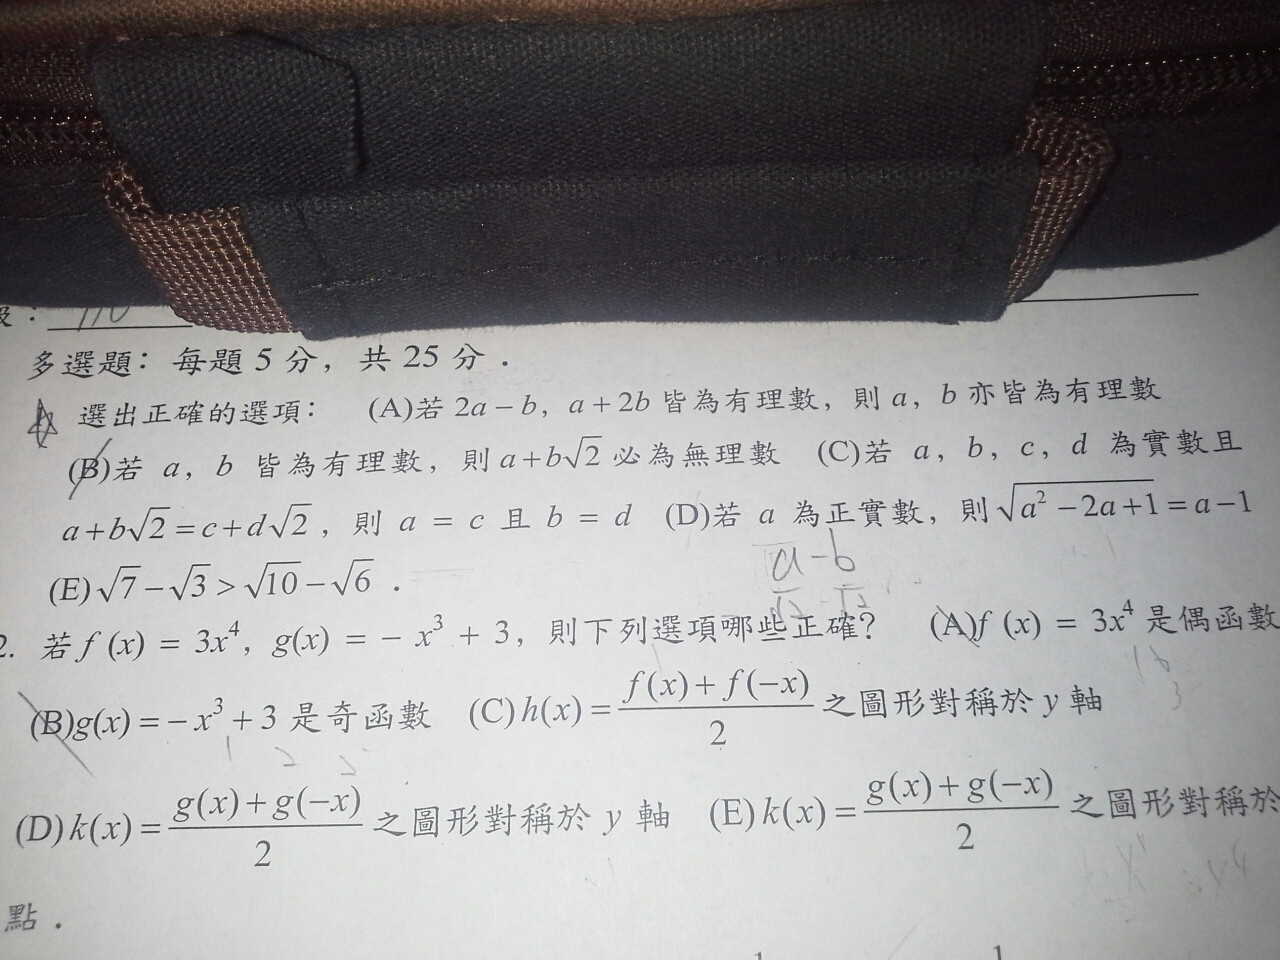 級：110
多選題：每題 5 分，共 25 分．
選出正確的選項： (A)若 2a－b，a＋2b 皆為有理數，則 a，b 亦皆為有理數
(B)若 a，b 皆為有理數，則 a＋b√2 必為無理數 (C)若 a，b，c，d 為實數且
a＋b√2＝c＋d√2，則 a ＝ c 且 b ＝ d (D)若 a 為正實數，則√(a²－2a＋1)＝a－1
a-b
(E)√7－√3＞√10－√6．
2. 若 f (x) ＝ 3x⁴，g(x) ＝ － x³ ＋ 3，則下列選項哪些正確？ (A)f (x) ＝ 3x⁴ 是偶函數
(B)g(x)＝－x³＋3 是奇函數 (C) h(x)＝(f(x)＋f(−x))/2 之圖形對稱於 y 軸
(D) k(x)＝(g(x)＋g(−x))/2 之圖形對稱於 y 軸 (E) k(x)＝(g(x)＋g(−x))/2 之圖形對稱於
點．